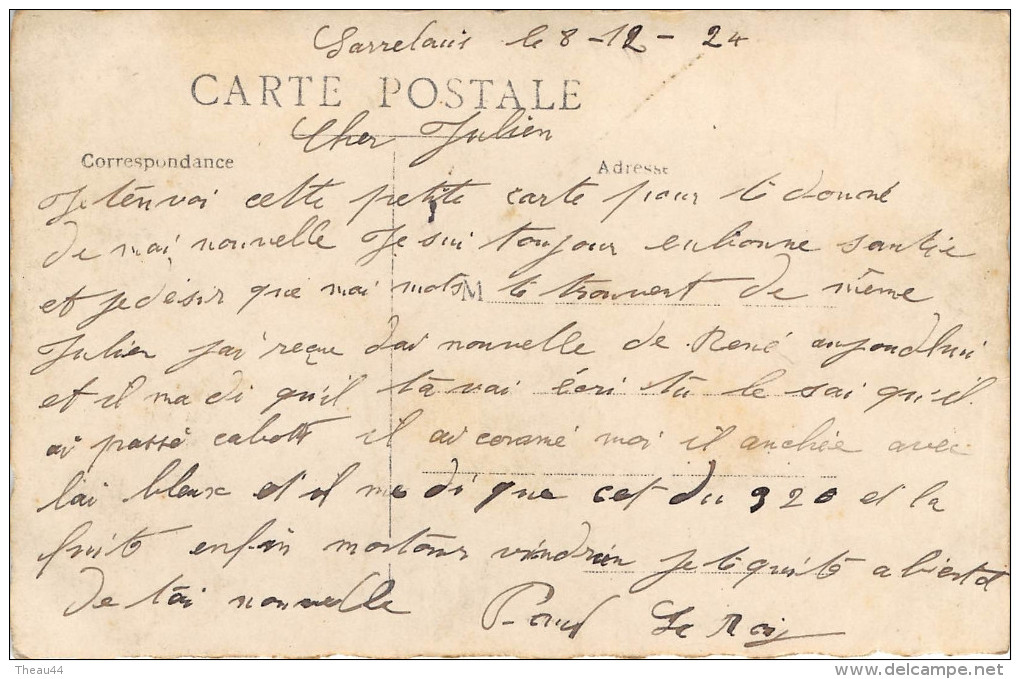 Sarrelouis le 8-12-24
CARTE POSTALE
Cher Julien
Correspondance
Adresse
Je tenvoi cette petite carte pour te donné
de mai nouvelle Je sui toujour en bonne santée
et je désir que mai mots te trouvent de même
M
Julien jai reçue dai nouvelle de René aujourdhui
et il ma di qu'il tavai écri tu le sai qu'il
ai passé cabott il ai comme moi il anchée avec
lai bleux et il me di que cet du 320 et la
fuite enfin nostour viendrien je te quite a bientot
de tai nouvelle
Paul Le Roi
Theau44
www.delcampe.net